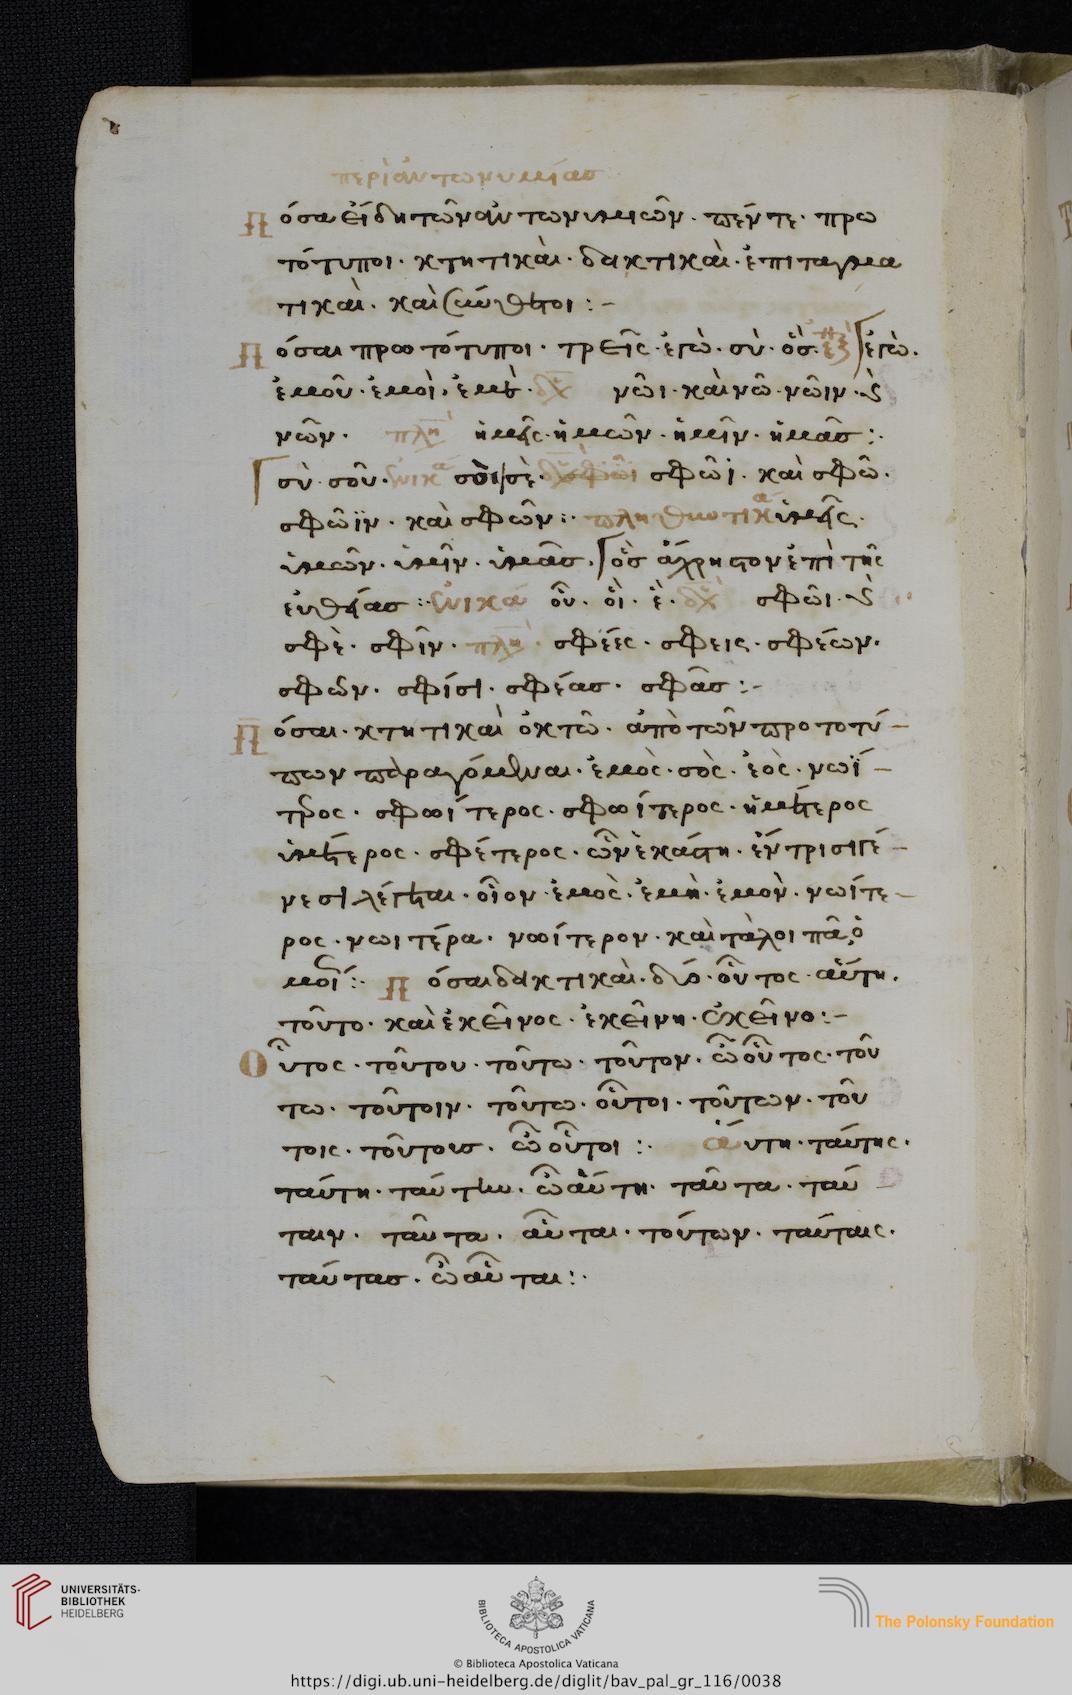 περὶ ἀντωνυμίας
Πόσα εἴδη τῶν ἀντωνυμιῶν· πέντε· πρω
τότυποι· κτητικαὶ· δεικτικαὶ· ἐπιταγμα
τικαὶ· καὶ σύνθετοι:-
Πόσαι πρωτότυποι· τρεῖς· ἐγὼ· σὺ· ὃς· ἐγὼ·
ἐμοῦ· ἐμοὶ· ἐμὲ· δυ νῶι· καὶ νῶ· νῶιν· καὶ
νῶν· πλη ἡμεῖς· ἡμῶν· ἡμῖν· ἡμᾶς:·
σὺ· σοῦ· σοὶ σὲ· σφῶϊ· καὶ σφῶ·
σφῶϊν· καὶ σφῶν:· πληθυντικὰ ὑμεῖς·
ὑμῶν· ὑμῖν· ὑμᾶς· ὃς ἄχρηστον ἐπὶ τῆς
εὐθείας:· ἑνικὰ οὗ· οἷ· ἕ· δυ σφῶι· καὶ
σφὲ· σφῖν· πλη σφέες· σφεις· σφέων·
σφῶν· σφίσι· σφέας· σφᾶς:-
Πόσαι· κτητικαὶ ὀκτῶ· ἀπὸ τῶν προτοτύ-
πων παραγόμεναι· ἐμὸς· σὸς· ἑὸς· νωΐ-
τερος· σφωίτερος· σφωίτερος· ἡμέτερος
ὑμέτερος· σφέτερος· ὧν ἑκάστη· ἐν τρισὶ γέ-
νεσι λέγεται· οἷον· ἐμὸς· ἐμὴ· ἐμὸν· νωίτε-
ρος· νωιτέρα· νωίτερον· καὶ τὰ λοιπᾶ ὁ
μοί:· Πόσαι δεικτικαὶ· δύο· οὗτος· αὕτη·
τοῦτο· καὶ ἐκεῖνος· ἐκεῖνη· ἐκεῖνο:-
Οὗτος· τοῦτου· τοῦτω· τοῦτον· ὦ οὗτος· τοῦ
τω· τοῦτοιν· τοῦτω· οὗτοι· τοῦτων· τοῦ
τοις· τοῦτους· ὦ οὗτοι:· αὕτη· ταύτης·
ταύτη· ταύτην· ὦ αὕτη· ταῦτα· ταύ-
ταιν· ταῦτα· αὗται· τούτων· ταύταις·
ταύτας· ὦ αὗται:·
UNIVERSITÄTS-
BIBLIOTHEK
HEIDELBERG
BIBLIOTECA APOSTOLICA VATICANA
The Polonsky Foundation
© Biblioteca Apostolica Vaticana
https://digi.ub.uni-heidelberg.de/diglit/bav_pal_gr_116/0038